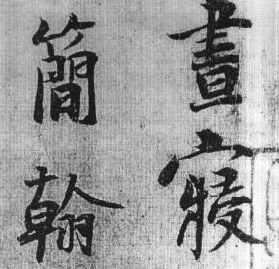 晝寢
簡翰